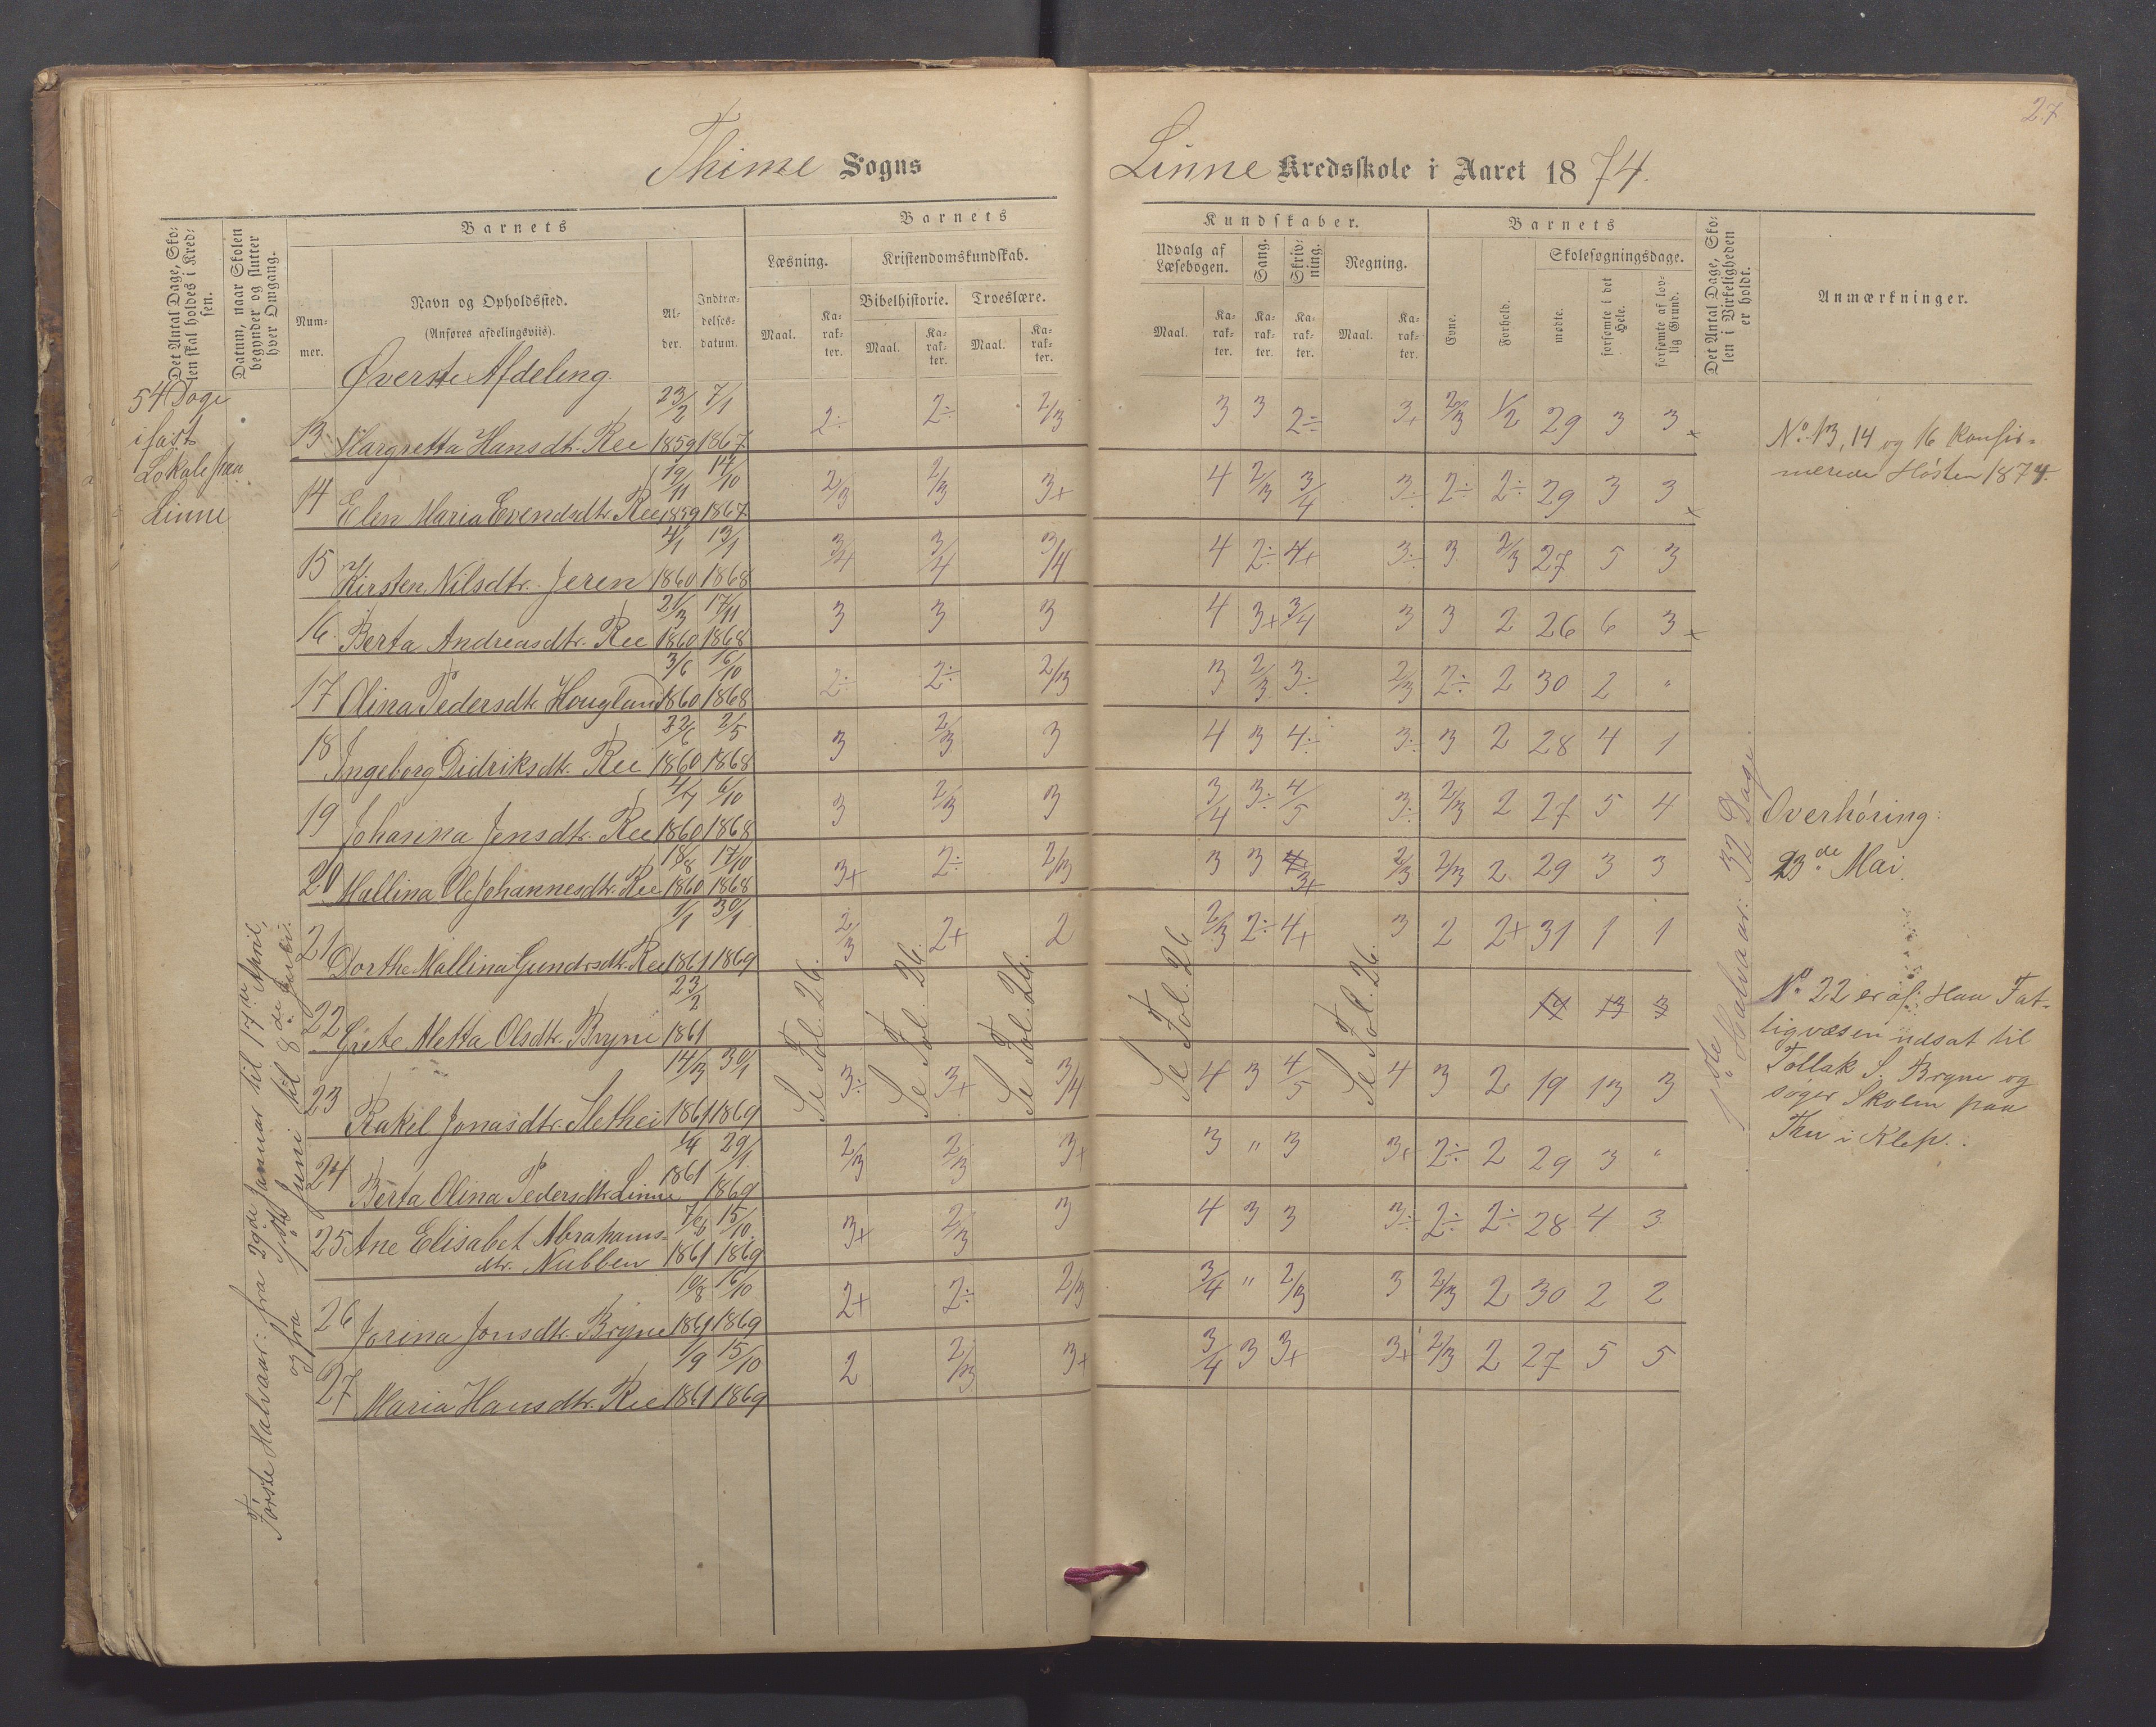 27
Thime Sogns
Linne Kredsskole i Aaret 1874.
Det Antal Dage, Skolen skal holdes i Kredsen.
Datum, naar Skolen begynder og slutter hver Omgang.
Barnets
Barnets
Kundskaber.
Barnets
Det Antal Dage, Skolen i Virkeligheden er holdt.
Anmærkninger.
Nummer.
Navn og Opholdssted.
(Anføres afdelingsviis).
Alder.
Indtrædelsesdatum.
Læsning.
Kristendomskundskab.
Bibelhistorie.
Troeslære.
Udvalg af Læsebogen.
Sang.
Skrivning.
Regning.
Evne.
Forhold.
Skolesøgningsdage.
mødte.
forsømte i det Hele.
forsømte af lovlig Grund.
Maal. Karakter. Maal. Karakter. Maal. Karakter.
Maal. Karakter. Karakter. Karakter. Maal. Karakter.
Øverste Afdeling.
54 Dage
i fast
Lokale paa
Linne
13 Margretta Hansdt. Ree 23/2 1859 7/1 1867 2÷ 2÷ 2/3 3 3 2÷ 3+ 2/3 1/2 29 3 3 x
14 Elen Maria Evendsdtr. Ree 19/11 1859 14/10 1867 2/3 2/3 3+ 4 2/3 3/4 3÷ 2÷ 2÷ 29 3 3 x
15 Kirsten Nilsdtr. Jeren 4/1 1860 13/1 1868 3/4 3/4 3/4 4 2÷ 4+ 3÷ 3 2/3 27 5 3
16 Berta Andreasdtr. Ree 21/3 1860 17/11 1868 3 3 3 4 3+ 3/4 3 3 2 26 6 3 x
17 Olina Pedersdtr. Hougland 3/6 1860 16/10 1868 2÷ 2÷ 2/3 3 2/3 3÷ 2/3 2÷ 2 30 2 "
18 Ingeborg Didriksdtr. Ree 22/6 1860 2/5 1868 3 2/3 3 4 3 4÷ 3÷ 3 2 28 4 1
19 Johanna Jensdtr. Ree 4/7 1860 6/10 1868 3 2/3 3 3/4 3÷ 4/5 3÷ 2/3 2 27 5 4
20 Mallina Ol. Johannesdtr. Ree 18/8 1860 17/10 1868 3+ 2÷ 2/3 3 3 3+ 2/3 2/3 2 29 3 3
21 Dorthe Mallina Gundrsdtr. Ree 1/1 1861 30/1 1869 2/3 2+ 2 2/3 2÷ 4+ 3 2 2+ 31 1 1
22 Grete Metta Olsdtr. Bryne 23/2 1861 14 13 3
23 Rakel Jonasdtr. Slethei 14/3 1861 30/1 1869 3÷ 3+ 3/4 4 3 4/5 4 3 2 19 13 3
24 Berta Olina Pedersdtr. Linne 1/4 1861 29/1 1869 2/3 2/3 3+ 3 " 3 3+ 2÷ 2 29 3 "
25 Ane Elisabet Abrahams-
dtr. Nubben 7/8 1861 15/10 1869 3+ 2/3 3 4 3 3 3÷ 2÷ 2÷ 28 4 3
26 Jorina Jonsdtr. Bryne 10/8 1861 16/10 1869 2+ 2÷ 2/3 3/4 " 2/3 3 2/3 2 30 2 2
27 Maria Hansdtr. Ree 1/9 1861 15/10 1869 2 2/3 3+ 3/4 3 3+ 3+ 2/3 2 27 5 5
Se Fol. 26.
Se Fol. 26.
Se Fol. 26.
Se Fol. 26
Se Fol. 26.
Første Halvaar: fra 29de Januar til 17de April,
og fra Juni til 8de
1ste Halvaar: 32 Dage.
No. 13, 14 og 16 Konfir-
merede Høsten 1874.
Overhøring:
23de Mai.
No. 22 er af Haa Fat-
tigvæsen udsat til
Tollak S. Bryne og
søger Skolen paa
Thu i Klep.